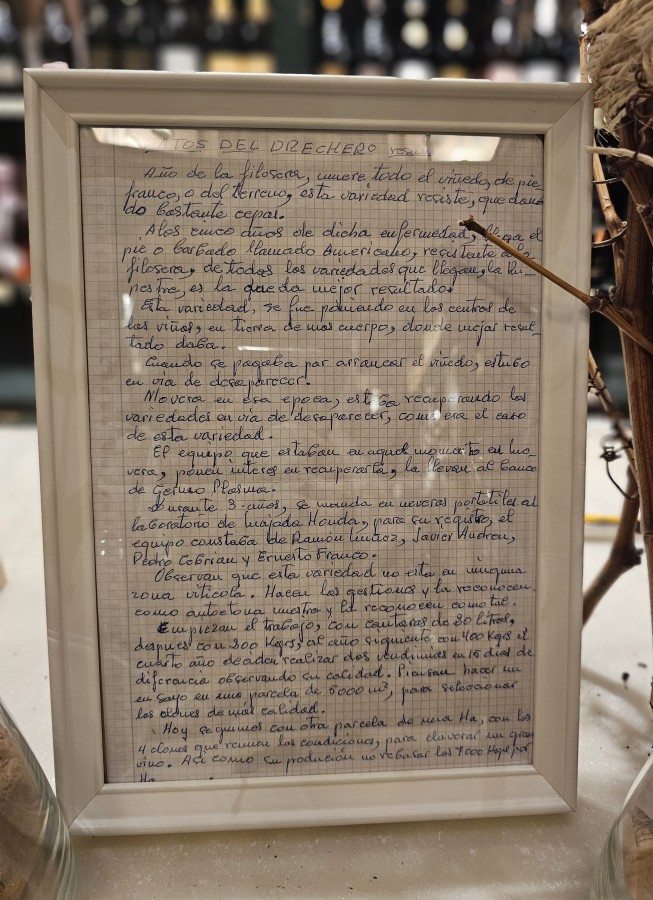 DATOS DEL DRECHERO
Año de la filosera, muere todo el viñedo, de pie
franco, o del terreno, esta variedad resiste, quedan
do bastante cepas.
A los cinco años de dicha enfermedad, llega el
pie o barbado llamado Americano, resistente a la
filosera, de todas las variedades que llegan, la Ru-
pestre, es la que da mejor resultado.
Esta variedad, se fue poniendo en los centros de
las viñas, en tierra de mas cuerpo, donde mejor resul-
tado daba.
Cuando se pagaba por arrancar el viñedo, estubo
en via de desaparecer.
Movera en esa epoca, estaba recuperando las
variedades en via de desaparecer, como era el caso
de esta variedad.
El equipo que estaban en aquel momento en Mo-
vera, ponen interes en recuperarla, la llevan al banco
de Germo Plasma.
Durante 3 años, se manda en neveras portatiles al
laboratorio de Majada Honda, para su registro, el
equipo constaba de Ramón Nuñez, Javier Andreu,
Pedro Cebrian y Ernesto Franco.
Observan que esta variedad no esta en ninguna
zona viticola. Hacen las gestiones y la reconocen
como autoctona nuestra y la reconocen como tal.
Empiezan el trabajo, con cantaras de 20 litros,
despues con 300 Kgrs, al año siguiente con 400 Kgrs el
cuarto año deciden realizar dos vendimias en 15 dias de
diferencia observando su calidad. Piensan hacer un
ensayo en una parcela de 5000 m², para seleccionar
los clones de más calidad.
Hoy seguimos con otra parcela de una Ha, con los
4 clones que reunen las condiciones, para elavorar un gran
vino. Asi como su produción no rebasar los 7000 Kgrs por
Ha